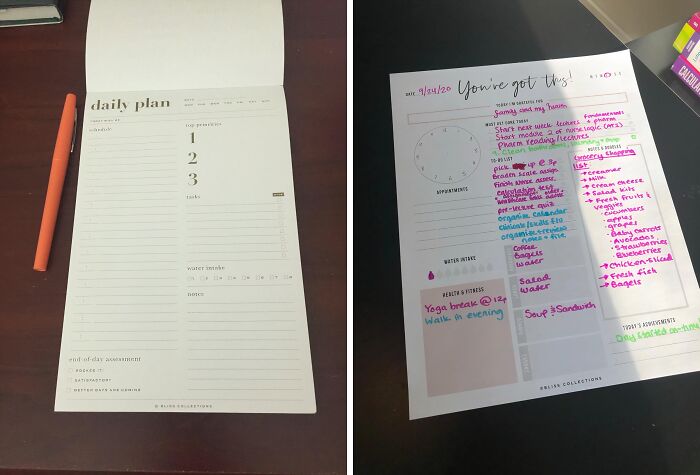 daily plan
DATE
SUN MON TUE WED THU FRI SAT
schedule
top priorities
1
2
3
tasks
water intake
1 2 3 4 5 6 7 8
notes
end-of-day assessment
ROCKED IT!
SATISFACTORY
BETTER DAYS ARE COMING
© BLISS COLLECTIONS
DATE 9/24/20
You've got this!
TODAY I'M GRATEFUL FOR
family and my health
MUST GET DONE TODAY
Start next week lectures fundamentals + pharm
Start module 2 of nurse logic (ATI)
Pharm reading/lectures
TO-DO LIST
pick up @ 3p
Braden scale assign.
Finish nurse assess.
calculation test
pre-lecture quiz
organize calendar
clinicals/skills flu
organize + review
notes + file
APPOINTMENTS
NOTES & DOODLES
Grocery shopping
list:
→ creamer
→ Milk
→ Cream cheese
→ Salad kits
→ Fresh fruits &
veggies
- cucumbers
- apples
- grapes
- Baby carrots
- Avocados
- Strawberries
- Blueberries
→ Chicken-sliced
→ Fresh fish
→ Bagels
WATER INTAKE
coffee
Bagels
water
Salad
water
Soup & Sandwich
HEALTH & FITNESS
Yoga break @ 12p
Walk in evening
TODAY'S ACHIEVEMENTS
Day started on-time!
©BLISS COLLECTIONS
CALCULA